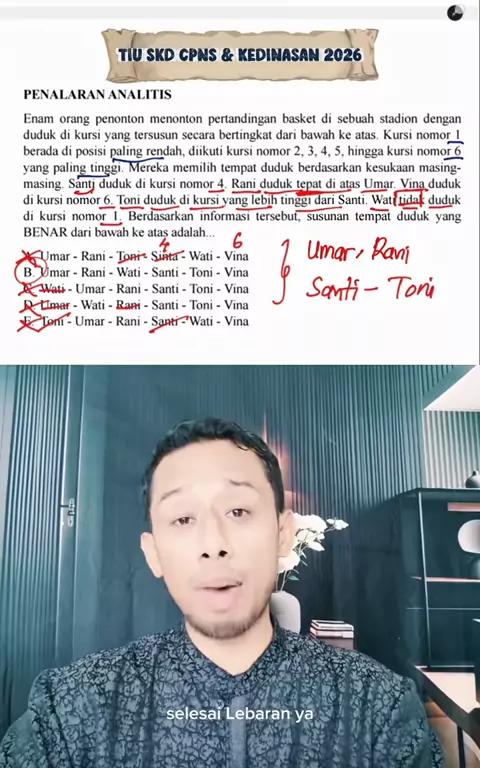 TIU SKD CPNS & KEDINASAN 2026
PENALARAN ANALITIS
Enam orang penonton menonton pertandingan basket di sebuah stadion dengan
duduk di kursi yang tersusun secara bertingkat dari bawah ke atas. Kursi nomor 1
berada di posisi paling rendah, diikuti kursi nomor 2, 3, 4, 5, hingga kursi nomor 6
yang paling tinggi. Mereka memilih tempat duduk berdasarkan kesukaan masing-
masing. Santi duduk di kursi nomor 4. Rani duduk tepat di atas Umar. Vina duduk
di kursi nomor 6. Toni duduk di kursi yang lebih tinggi dari Santi. Wati tidak duduk
di kursi nomor 1. Berdasarkan informasi tersebut, susunan tempat duduk yang
BENAR dari bawah ke atas adalah...
4 6
A. Umar - Rani - Toni - Sinta - Wati - Vina
B. Umar - Rani - Wati - Santi - Toni - Vina
C. Wati - Umar - Rani - Santi - Toni - Vina
D. Umar - Wati - Rani - Santi - Toni - Vina
E. Toni - Umar - Rani - Santi - Wati - Vina
Umar, Rani
Santi - Toni
selesai Lebaran ya